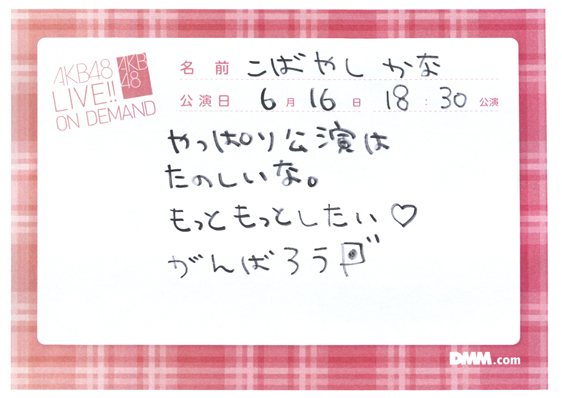 AKB48
LIVE!!
ON DEMAND
AKB
48
名前 こばやし かな
公演日 6月16日 18:30公演
やっぱり公演は
たのしいな。
もっともっとしたい♡
がんばろう
DMM.com